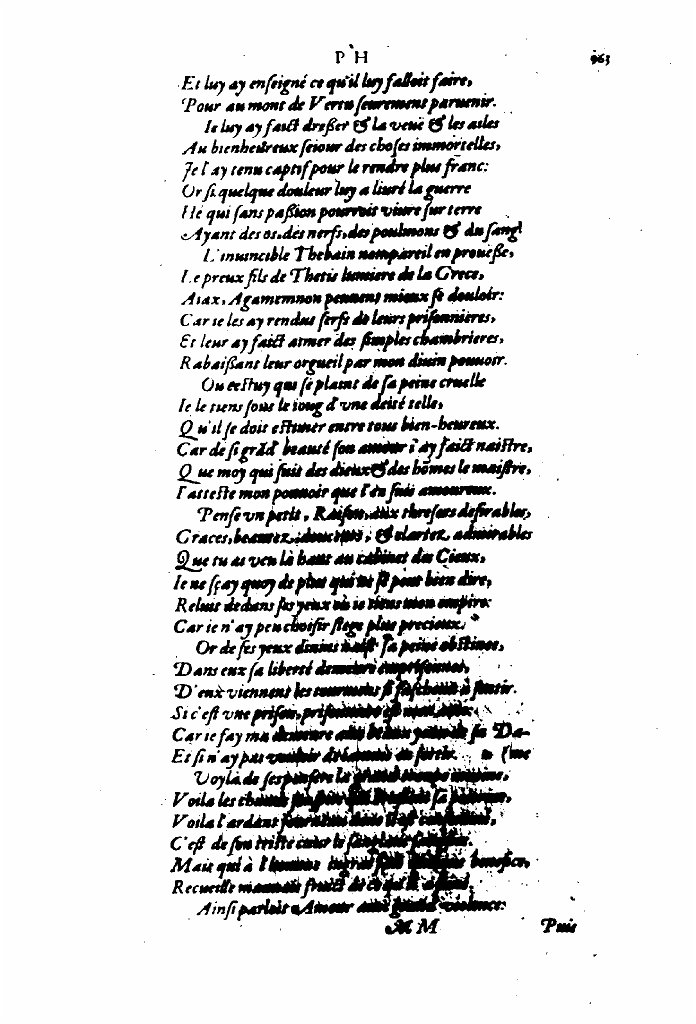 P H 963
Et luy ay enſeigné ce qu'il luy falloit faire,
Pour au mont de Vertu ſeurement paruenir.
Ie luy ay faict dreßer & la veuë & les ailes
Au bienheureux ſeiour des choſes immortelles,
Je l'ay tenu captif pour le rendre plus franc:
Or ſi quelque douleur luy a liuré la guerre
Hé qui ſans paßion pourroit viure ſur terre
Ayant des os, des nerfs, des poulmons & du ſang?
L'inuincible Thebain nompareil en proueße,
Le preux fils de Thetis lumiere de la Grece,
Aiax, Agamemnon peuuent mieux ſe douloir:
Car ie les ay rendus ſerfs de leurs priſonnieres,
Et leur ay faict aimer des ſimples chambrieres,
Rabaißant leur orgueil par mon diuin pouuoir.
Ou ceſtuy qui ſe plaint de ſa peine cruelle
Ie le tiens ſous le ioug d'vne deité telle,
Qu'il ſe doit eſtimer entre tous bien-heureux.
Car de ſi grãd' beauté ſon amour i'ay faict naiſtre,
Que moy qui ſuis des dieux & des hõmes le maiſtre,
I'atteſte mon pouuoir que i'en ſuis amoureux.
Penſe vn petit, Raiſon, aux threſors deſirables,
Graces, beautez, & clartez admirables
Que tu as veu là haut au cabinet des Cieux,
Ie ne ſçay quoy de plus qui ne ſe peut bien dire,
Reluit dedans ſes yeux où ie tiens mon empire
Car ie n'ay peu choiſir ſiege plus precieux.
Or de ſes yeux diuins naiſt ſa peine obſtinee,
Dans eux ſa liberté demeure empriſonnee,
D'eux viennent les tourmens ſi faſcheux à ſentir.
Si c'eſt vne priſon, priſonniere eſt mon
Car ie fay ma demeure aux beaux yeux de ſa Da-
Et ſi n'ay pas vouloir d'en ſortir. (me
Voylà de ſes penſers la
Voila les chauds ſouſpirs qui ſa poitrine,
Voila l'ardant
C'eſt de ſon triſte cœur le
Mais qui à l'homme ingrat fait benefice,
Recueille mauuais fruict de ce qu'il a
Ainſi parloit Amour auec grande violence:
M M Puis